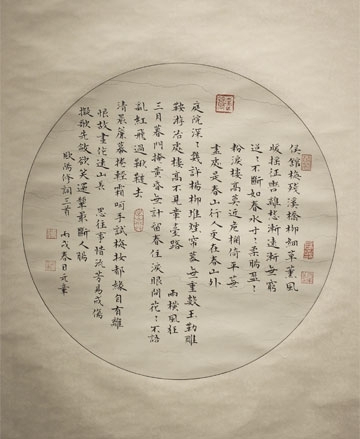 侯館梅殘溪橋柳細草薰風
暖搖征轡離愁漸遠漸無窮
迢〻不斷如春水寸〻柔腸盈〻
粉淚樓高莫近危欄倚平蕪
盡處是春山行人更在春山外
庭院深〻幾許楊柳堆煙簾幕無重數玉勒雕
鞍游冶處樓高不見章臺路 雨橫風狂
三月暮門掩黃昏無計留春住淚眼問花〻不語
亂紅飛過鞦韆去
清晨簾幕捲輕霜呵手試梅妝都緣自有離
恨故畫作遠山長 思往事惜流芳易成傷
擬歌先斂欲笑還顰最斷人腸
歐陽修詞三首 丙戌春日